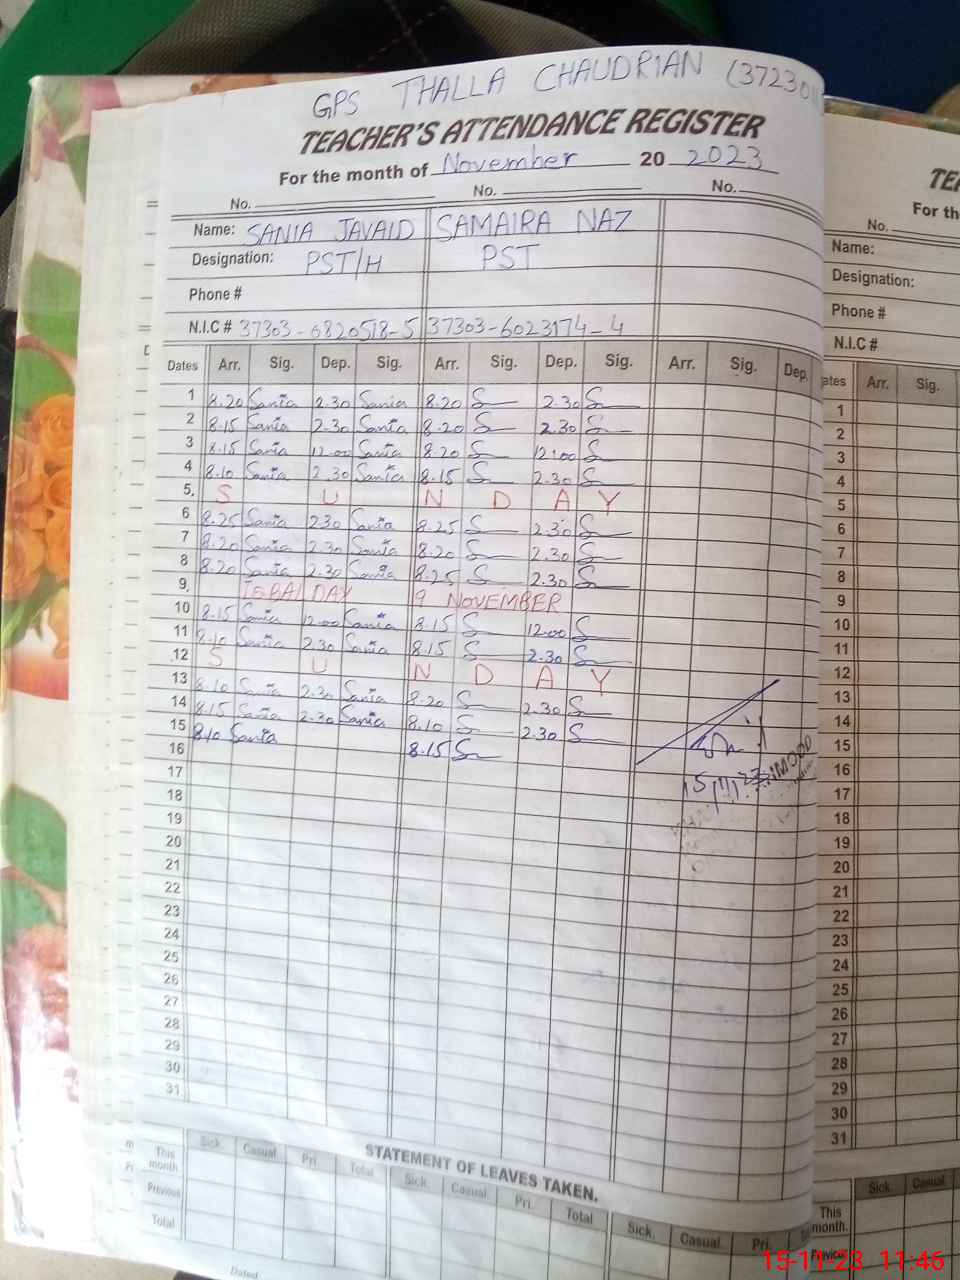 GPS THALLA CHAUDRIAN (37230
TEACHER'S ATTENDANCE REGISTER
For the month of November 20 2023
No. No. No.
Name: SANIA JAVAID SAMAIRA NAZ
Designation: PST/H PST
Phone #
N.I.C # 37303-6820518-5 37303-6023174-4
Dates Arr. Sig. Dep. Sig. Arr. Sig. Dep. Sig. Arr. Sig. Dep.
1 8.20 Sania 2.30 Sania 8.20 S 2.30 S
2 8.15 Sania 2.30 Sania 8.20 S 2.30 S
3 8.15 Sania 12.00 Sania 8.20 S 12.00 S
4 8.10 Sania 2.30 Sania 8.15 S 2.30 S
5. S U N D A Y
6 8.25 Sania 2.30 Sania 8.25 S 2.30 S
7 8.20 Sania 2.30 Sania 8.20 S 2.30 S
8 8.20 Sania 2.30 Sania 8.25 S 2.30 S
9. IQBAL DAY 9 NOVEMBER
10 8.15 Sania 12.00 Sania 8.15 S 12.00 S
11 8.10 Sania 2.30 Sania 8.15 S 2.30 S
12 S U N D A Y
13 8.10 Sania 2.30 Sania 8.20 S 2.30 S
14 8.15 Sania 2.30 Sania 8.10 S 2.30 S
15 8.10 Sania 8.15 S
16
15/11/23
17
18
19
20
21
22
23
24
25
26
27
28
29
30
31
STATEMENT OF LEAVES TAKEN.
Sick. Casual Pri. Total Sick. Casual Pri. Total Sick. Casual Pri.
This month.
Previous
Total
Dated
No.
For th
Name:
Designation:
Phone #
N.I.C #
ates Arr. Sig.
1
2
3
4
5
6
7
8
9
10
11
12
13
14
15
16
17
18
19
20
21
22
23
24
25
26
27
28
29
30
31
Sick. Casual
This month.
Previous
15-11-23 11:46